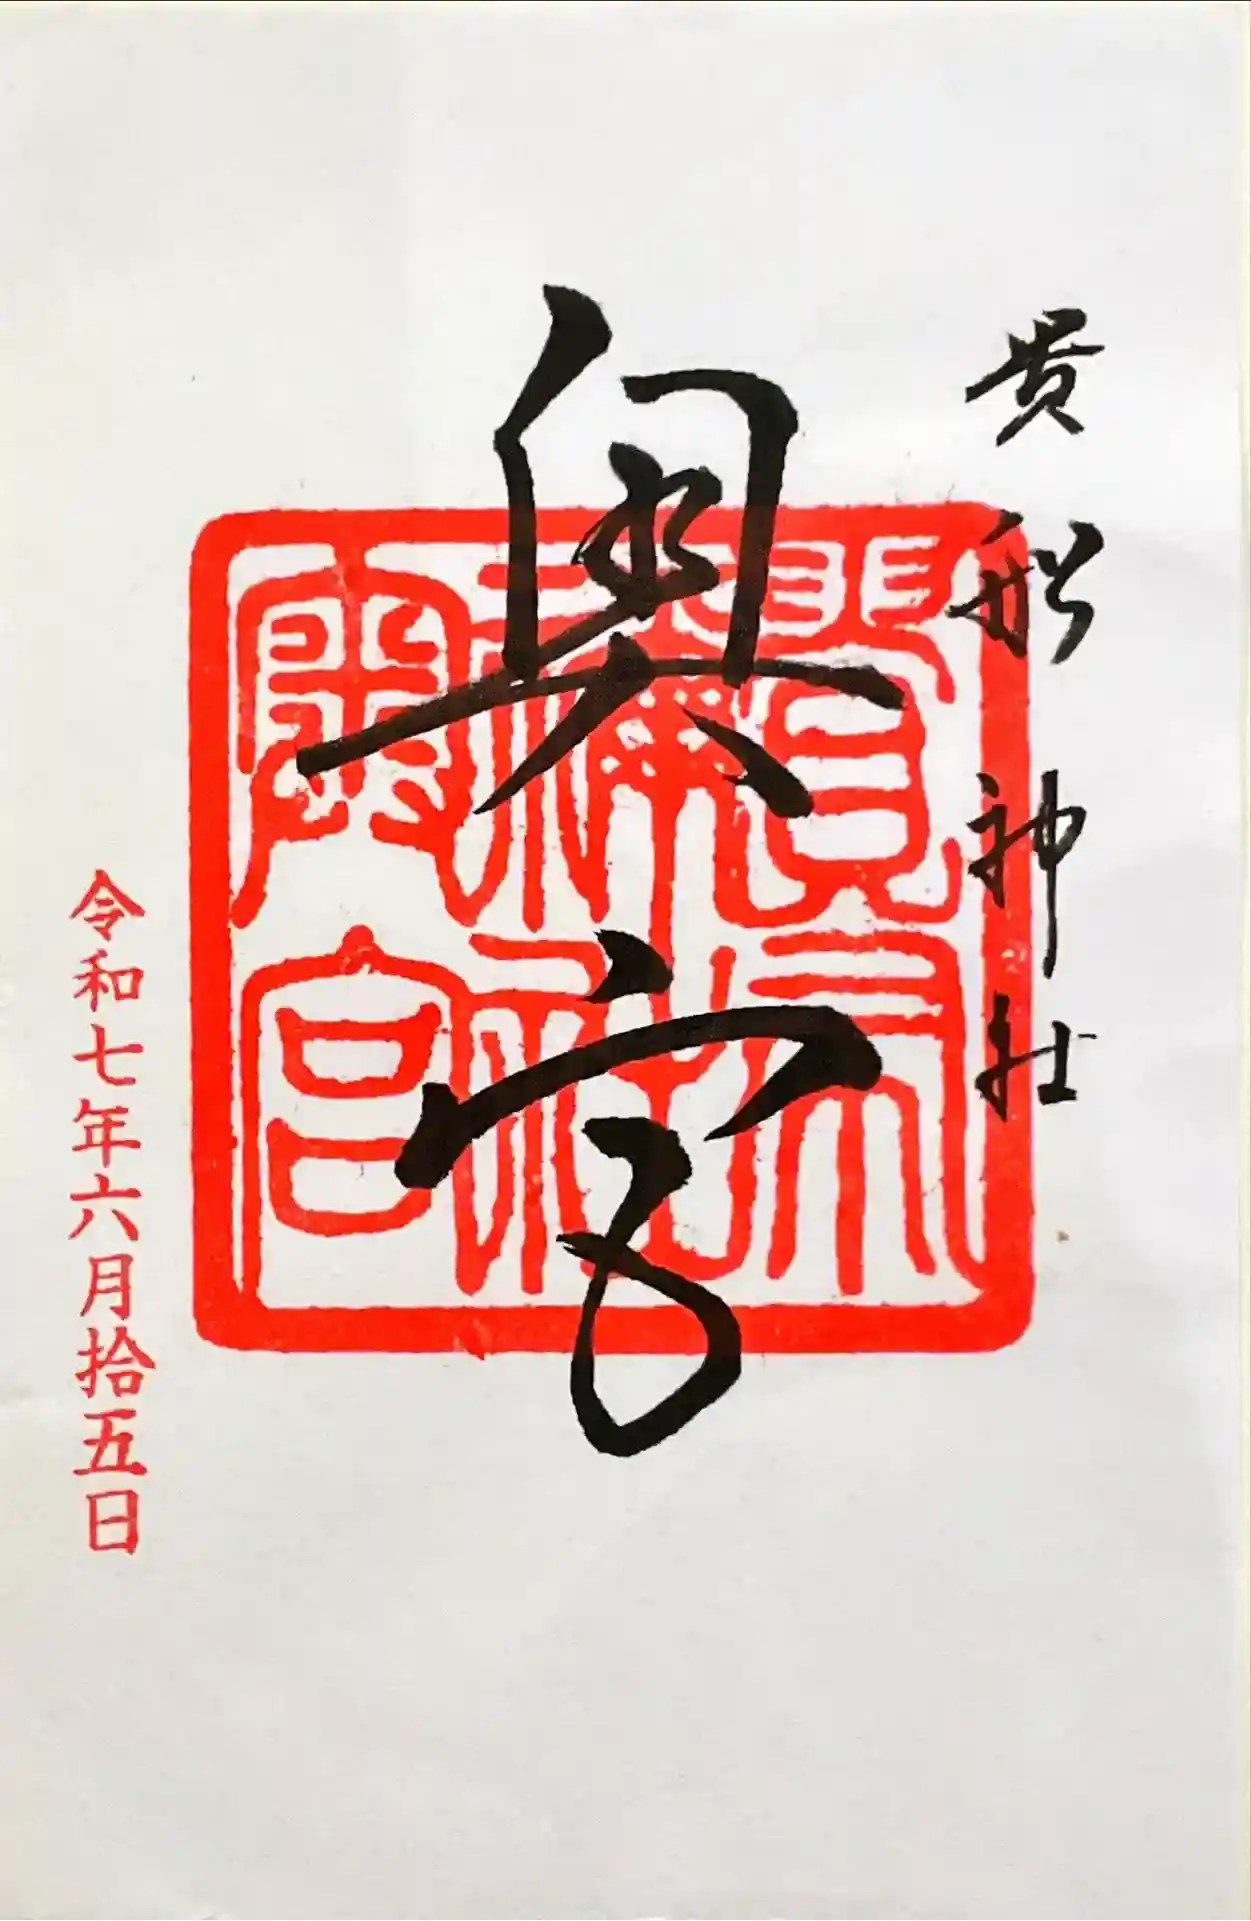 貴船神社
奥宮
貴布
禰社
奥宮
令和七年六月拾五日